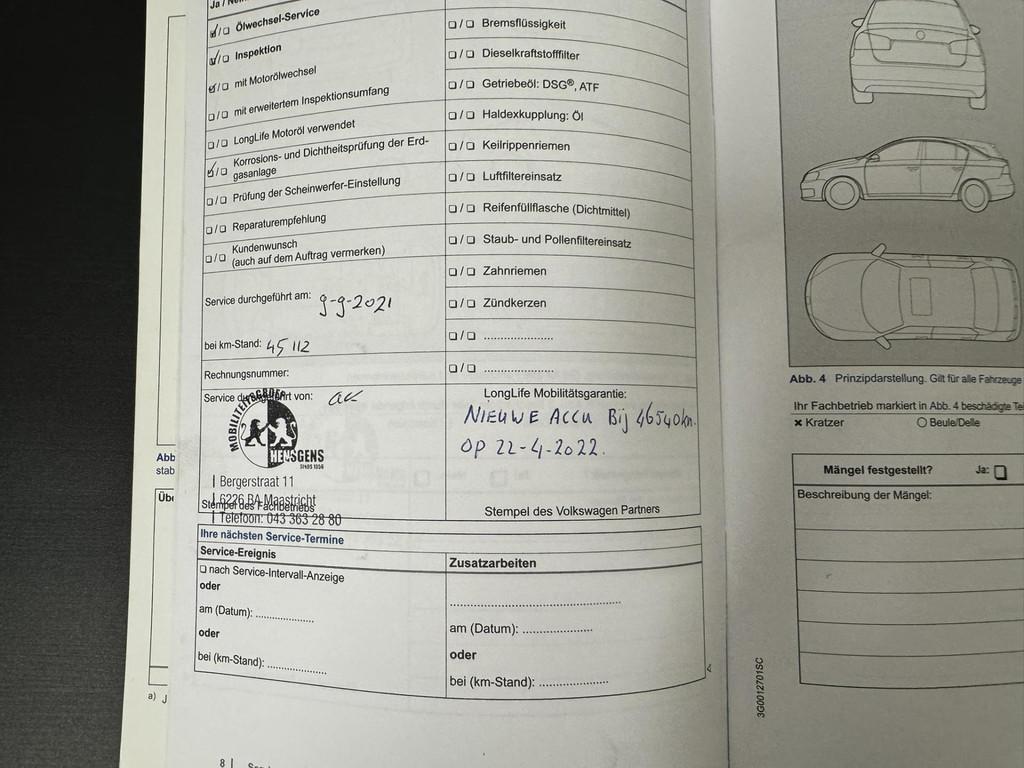 Ja / 
☑/☐ Ölwechsel-Service
☑/☐ Inspektion
☑/☐ mit Motorölwechsel
☐/☐ mit erweitertem Inspektionsumfang
☐/☐ LongLife Motoröl verwendet
☑/☐ Korrosions- und Dichtheitsprüfung der Erd-
gasanlage
☐/☐ Prüfung der Scheinwerfer-Einstellung
☐/☐ Reparaturempfehlung
☐/☐ Kundenwunsch
(auch auf dem Auftrag vermerken)
Service durchgeführt am: 9-9-2021
bei km-Stand: 45112
Rechnungsnummer:
Service durchgeführt von:
MOBILITEITSGROEP
HENSGENS
SINDS 1936
| Bergerstraat 11
| 6226 BA Maastricht
Stempel des Fachbetriebs
| Telefoon: 043 363 28 80
☐/☐ Bremsflüssigkeit
☐/☐ Dieselkraftstofffilter
☐/☐ Getriebeöl: DSG®, ATF
☐/☐ Haldexkupplung: Öl
☐/☐ Keilrippenriemen
☐/☐ Luftfiltereinsatz
☐/☐ Reifenfüllflasche (Dichtmittel)
☐/☐ Staub- und Pollenfiltereinsatz
☐/☐ Zahnriemen
☐/☐ Zündkerzen
☐/☐ ......................
☐/☐ ......................
LongLife Mobilitätsgarantie:
NIEUWE ACCU Bij 46540km.
OP 22-4-2022.
Stempel des Volkswagen Partners
Ihre nächsten Service-Termine
Service-Ereignis
☐ nach Service-Intervall-Anzeige
oder
am (Datum): ..................
oder
bei (km-Stand): ..................
Zusatzarbeiten
..................................................
am (Datum): ......................
oder
bei (km-Stand): ......................
8 |
Abb
stab
a) J
Abb. 4 Prinzipdarstellung. Gilt für alle Fahrzeuge
Ihr Fachbetrieb markiert in Abb. 4 beschädigte
× Kratzer ○ Beule/Delle
Mängel festgestellt? Ja: ☐
Beschreibung der Mängel:
3G0012701SC